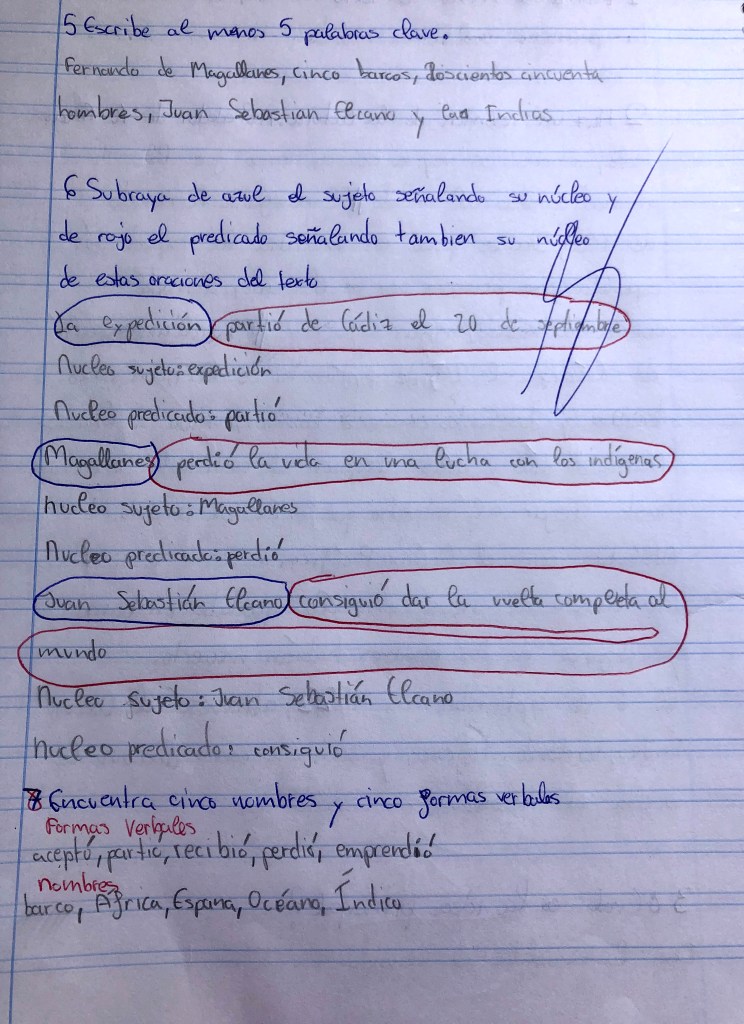 5 Escribe al menos 5 palabras clave.
Fernando de Magallanes, cinco barcos, doscientos cincuenta
hombres, Juan Sebastian Elcano y las Indias
6 Subraya de azul el sujeto señalando su núcleo y
de rojo el predicado señalando tambien su núcleo
de estas oraciones del texto
La expedición partió de Cádiz el 20 de septiembre
Nucleo sujeto: expedición
Nucleo predicado: partió
Magallanes perdió la vida en una lucha con los indígenas
nucleo sujeto: Magallanes
Nucleo predicado: perdió
Juan Sebastián Elcano consiguió dar la vuelta completa al
mundo
Nucleo sujeto: Juan Sebastián Elcano
nucleo predicado: consiguió
7 Encuentra cinco nombres y cinco formas verbales
Formas Verbales
aceptó, partió, recibió, perdió, emprendió
nombres
barco, África, Espana, Océano, Índico